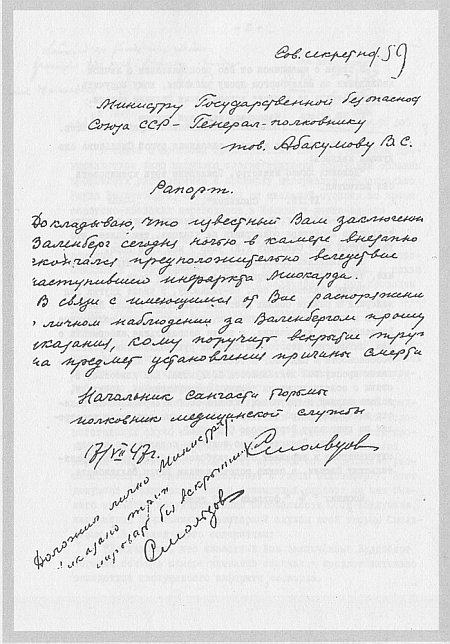 Сов. секретно. 59
Министру Государственной безопаснос
Союза ССР - Генерал-полковнику
тов. Абакумову В.С.
Рапорт.
Докладываю, что известный Вам заключенн
Валенберг сегодня ночью в камере внезапно
скончался предположительно вследствие
наступившего инфаркта миокарда.
В связи с имеющимся от Вас распоряжени
о личном наблюдении за Валенбергом прошу
указания, кому поручить вскрытие труп
на предмет установления причины смерти
Начальник санчасти тюрьмы
полковник медицинской службы
17/VII 47г. Смольцов
Доложил лично Министру.
Приказано труп
кремировать без вскрытия
Смольцов